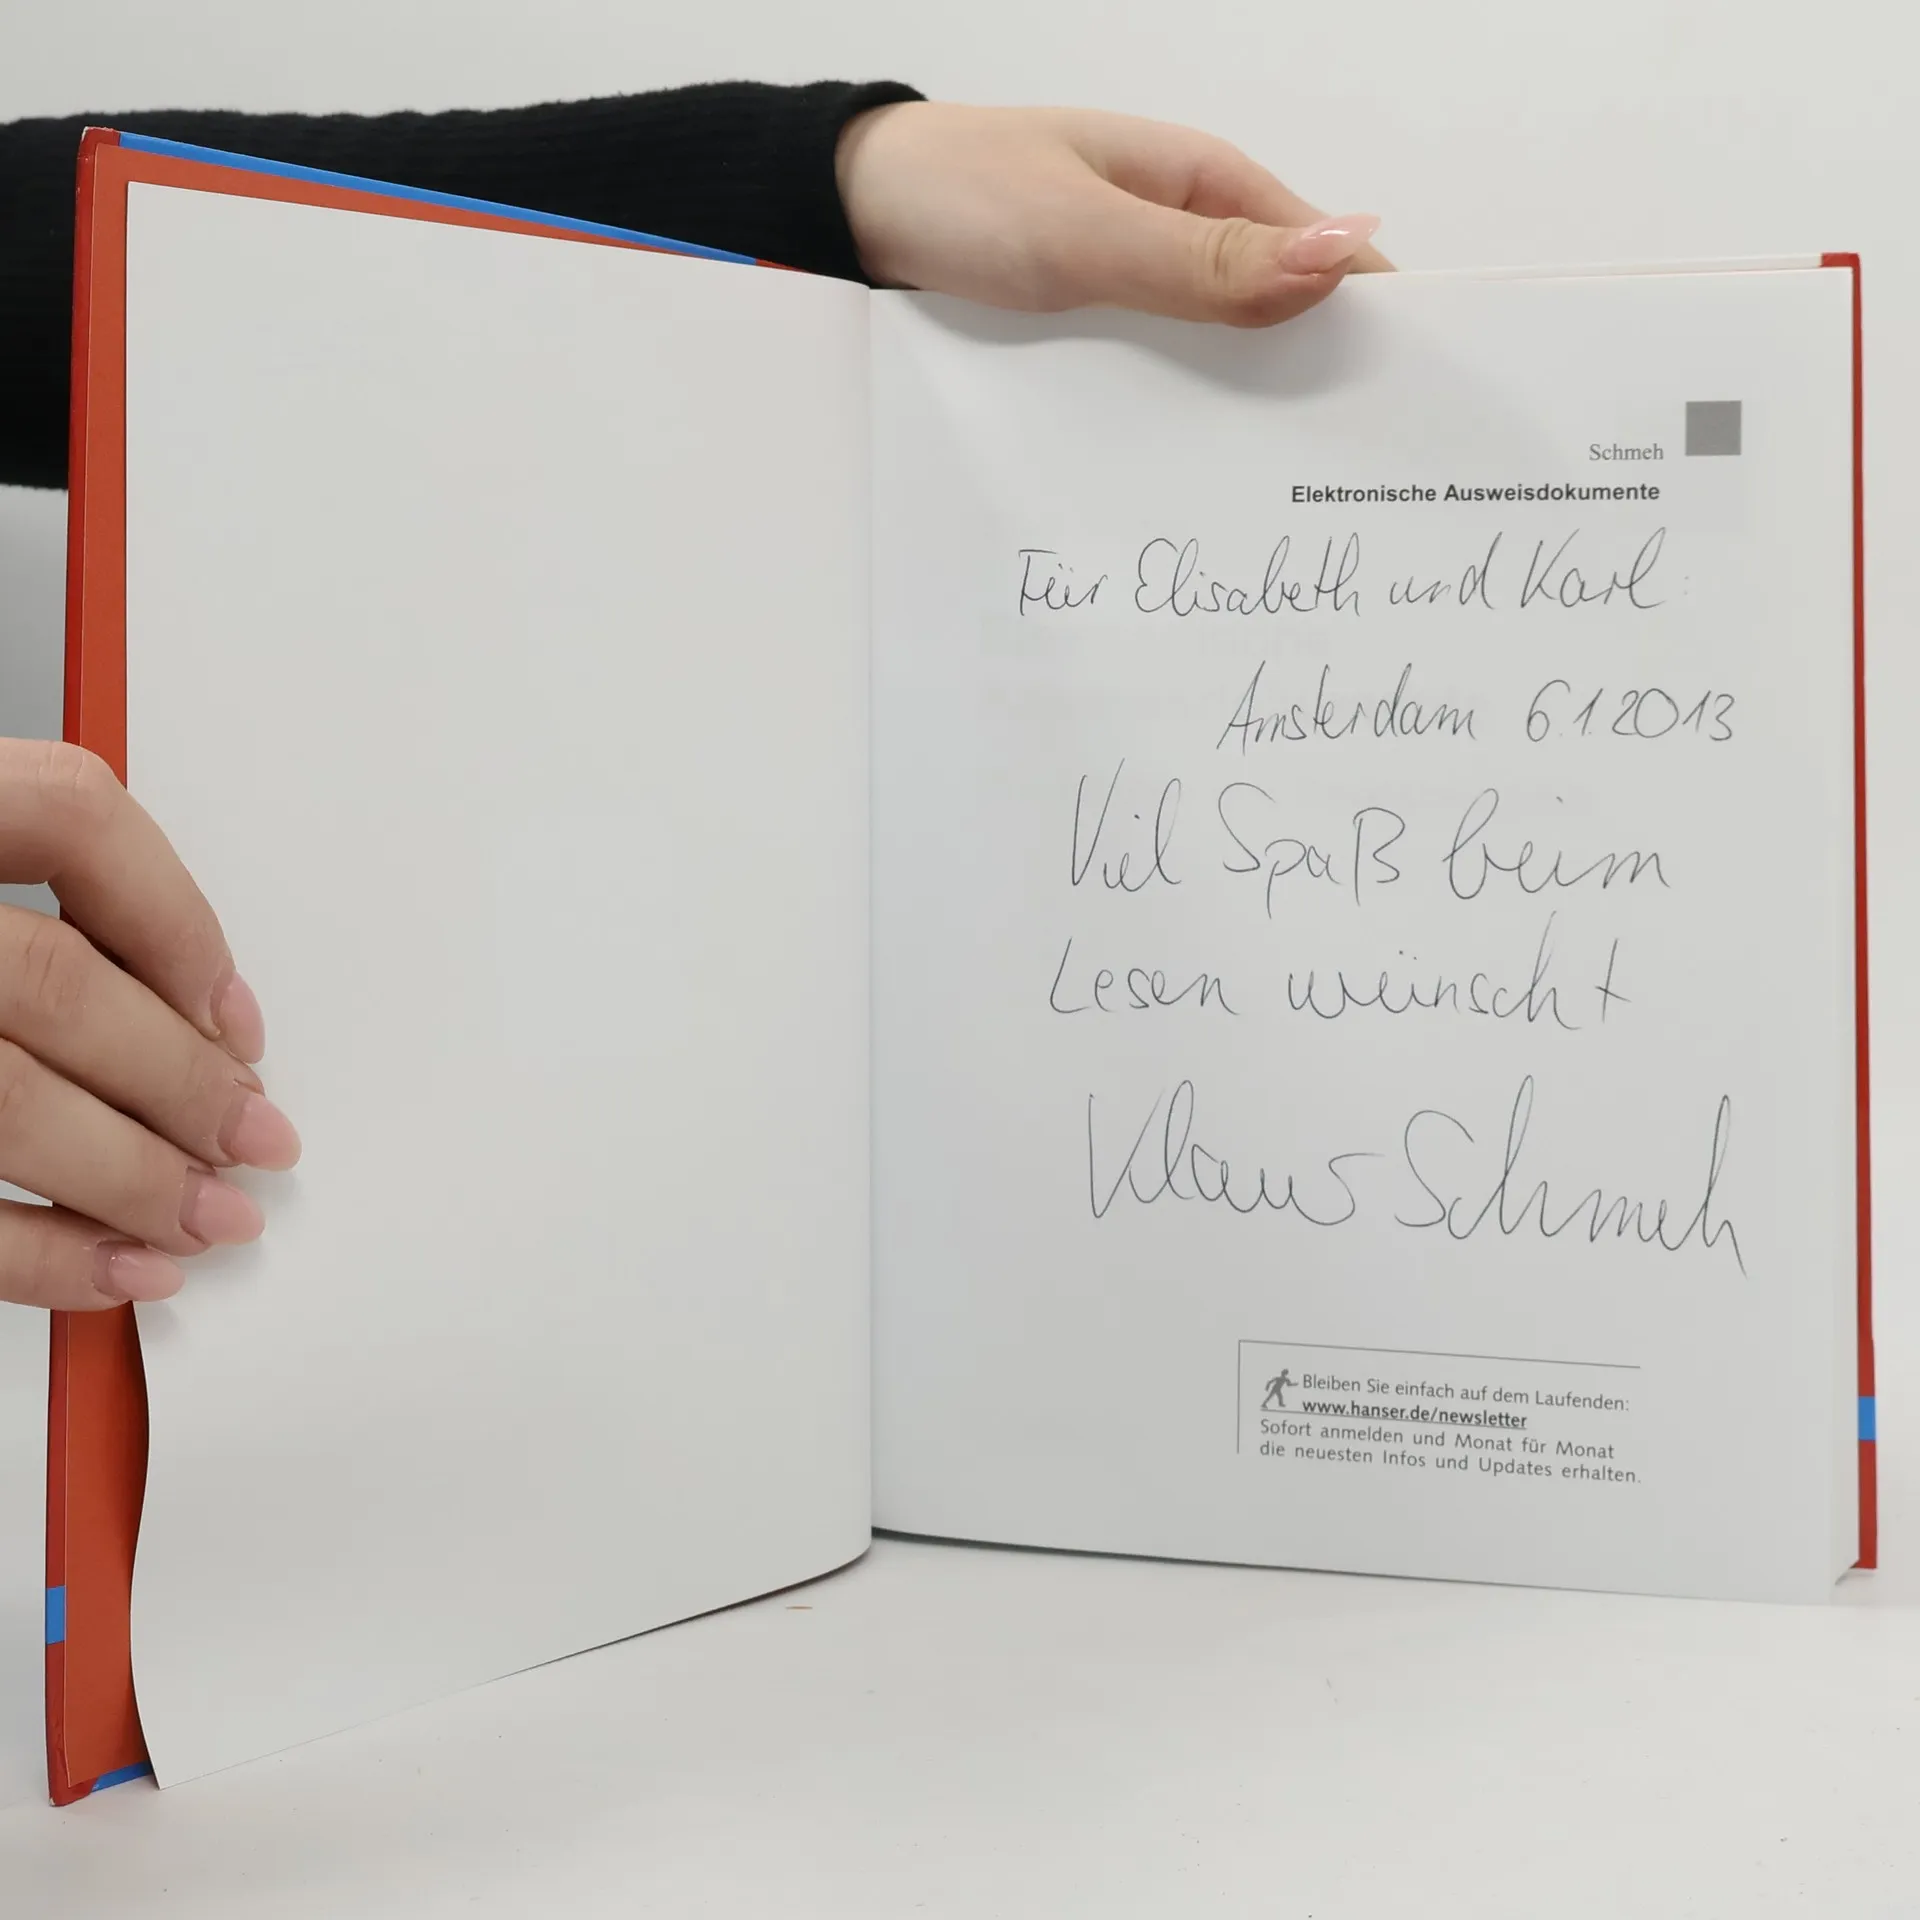 Schmeh
Elektronische Ausweisdokumente
Für Elisabeth und Karl:
Amsterdam 6.1.2013
Viel Spaß beim
Lesen wünscht
Klaus Schmeh
Bleiben Sie einfach auf dem Laufenden:
www.hanser.de/newsletter
Sofort anmelden und Monat für Monat
die neuesten Infos und Updates erhalten.